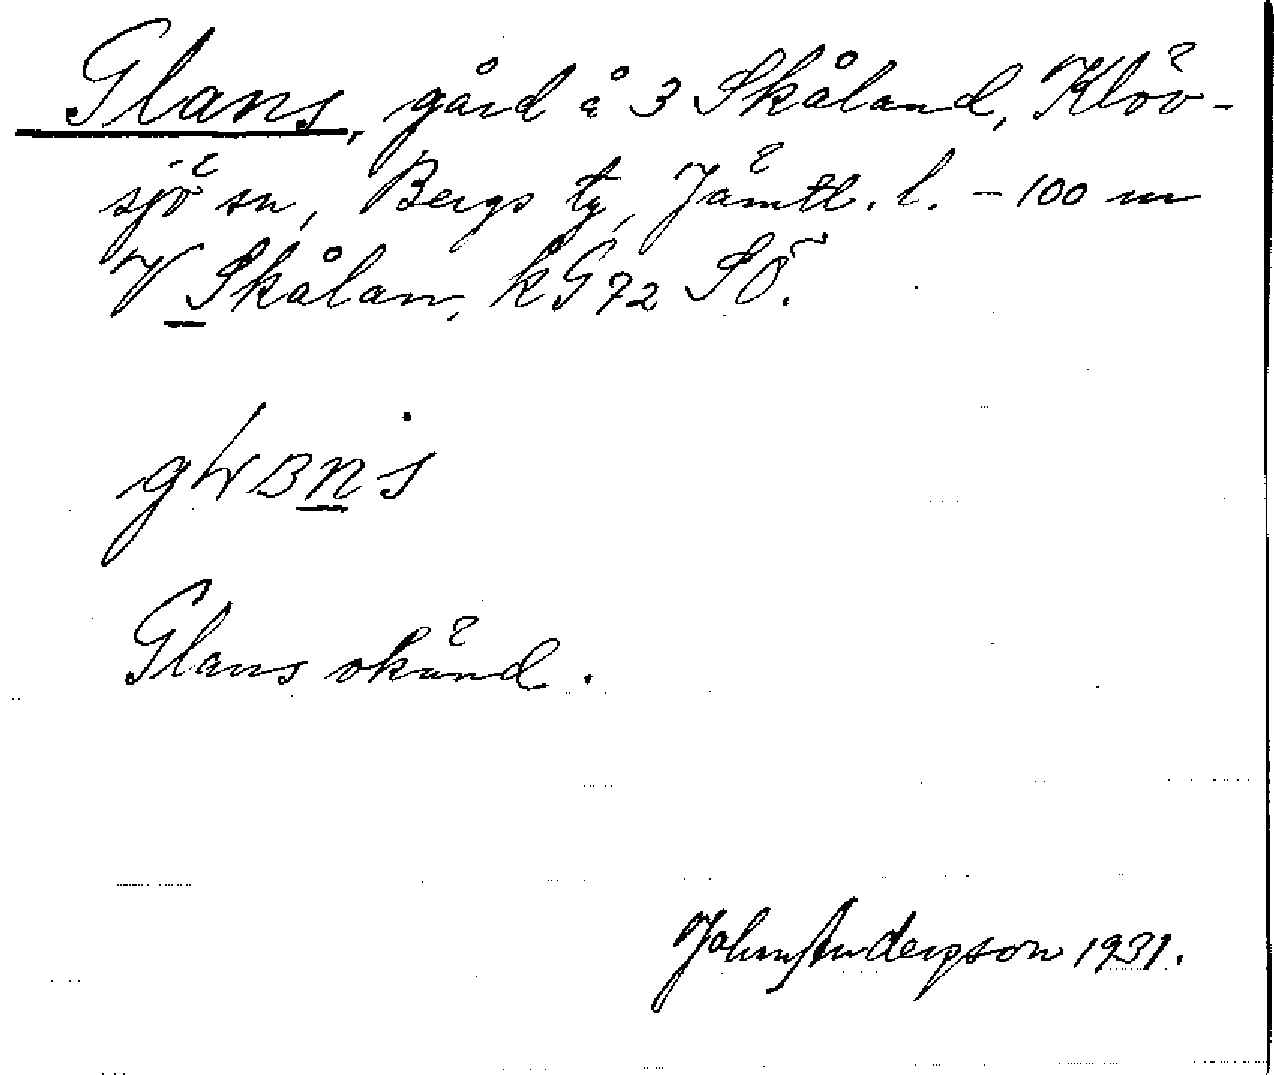 Glans, gård å 3 Skåland, Klöv-
sjö sn, Bergs tg, Jämtl. l. - 100 m
V Skålan, kG72 SÖ.
Glans okänd.
John Andersson 1931.